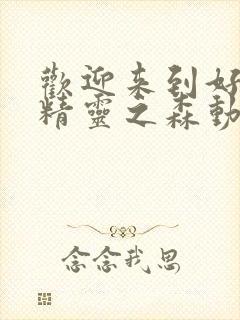 歡迎来到好
精靈之森動
念念我思